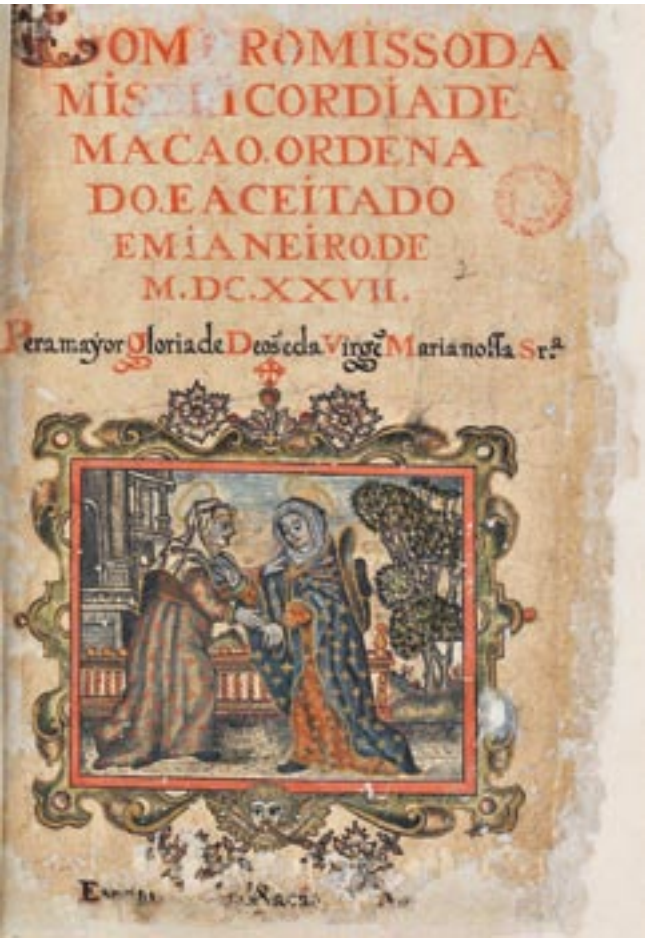 COMPROMISSODA
MISERICORDIADE
MACAO.ORDENA
DO.EACEITADO
EMIANEIRO.DE
M.DC.XXVII.
Peramayor gloriade Deos eda Virgẽ Marianossa Sr.ª
Macao